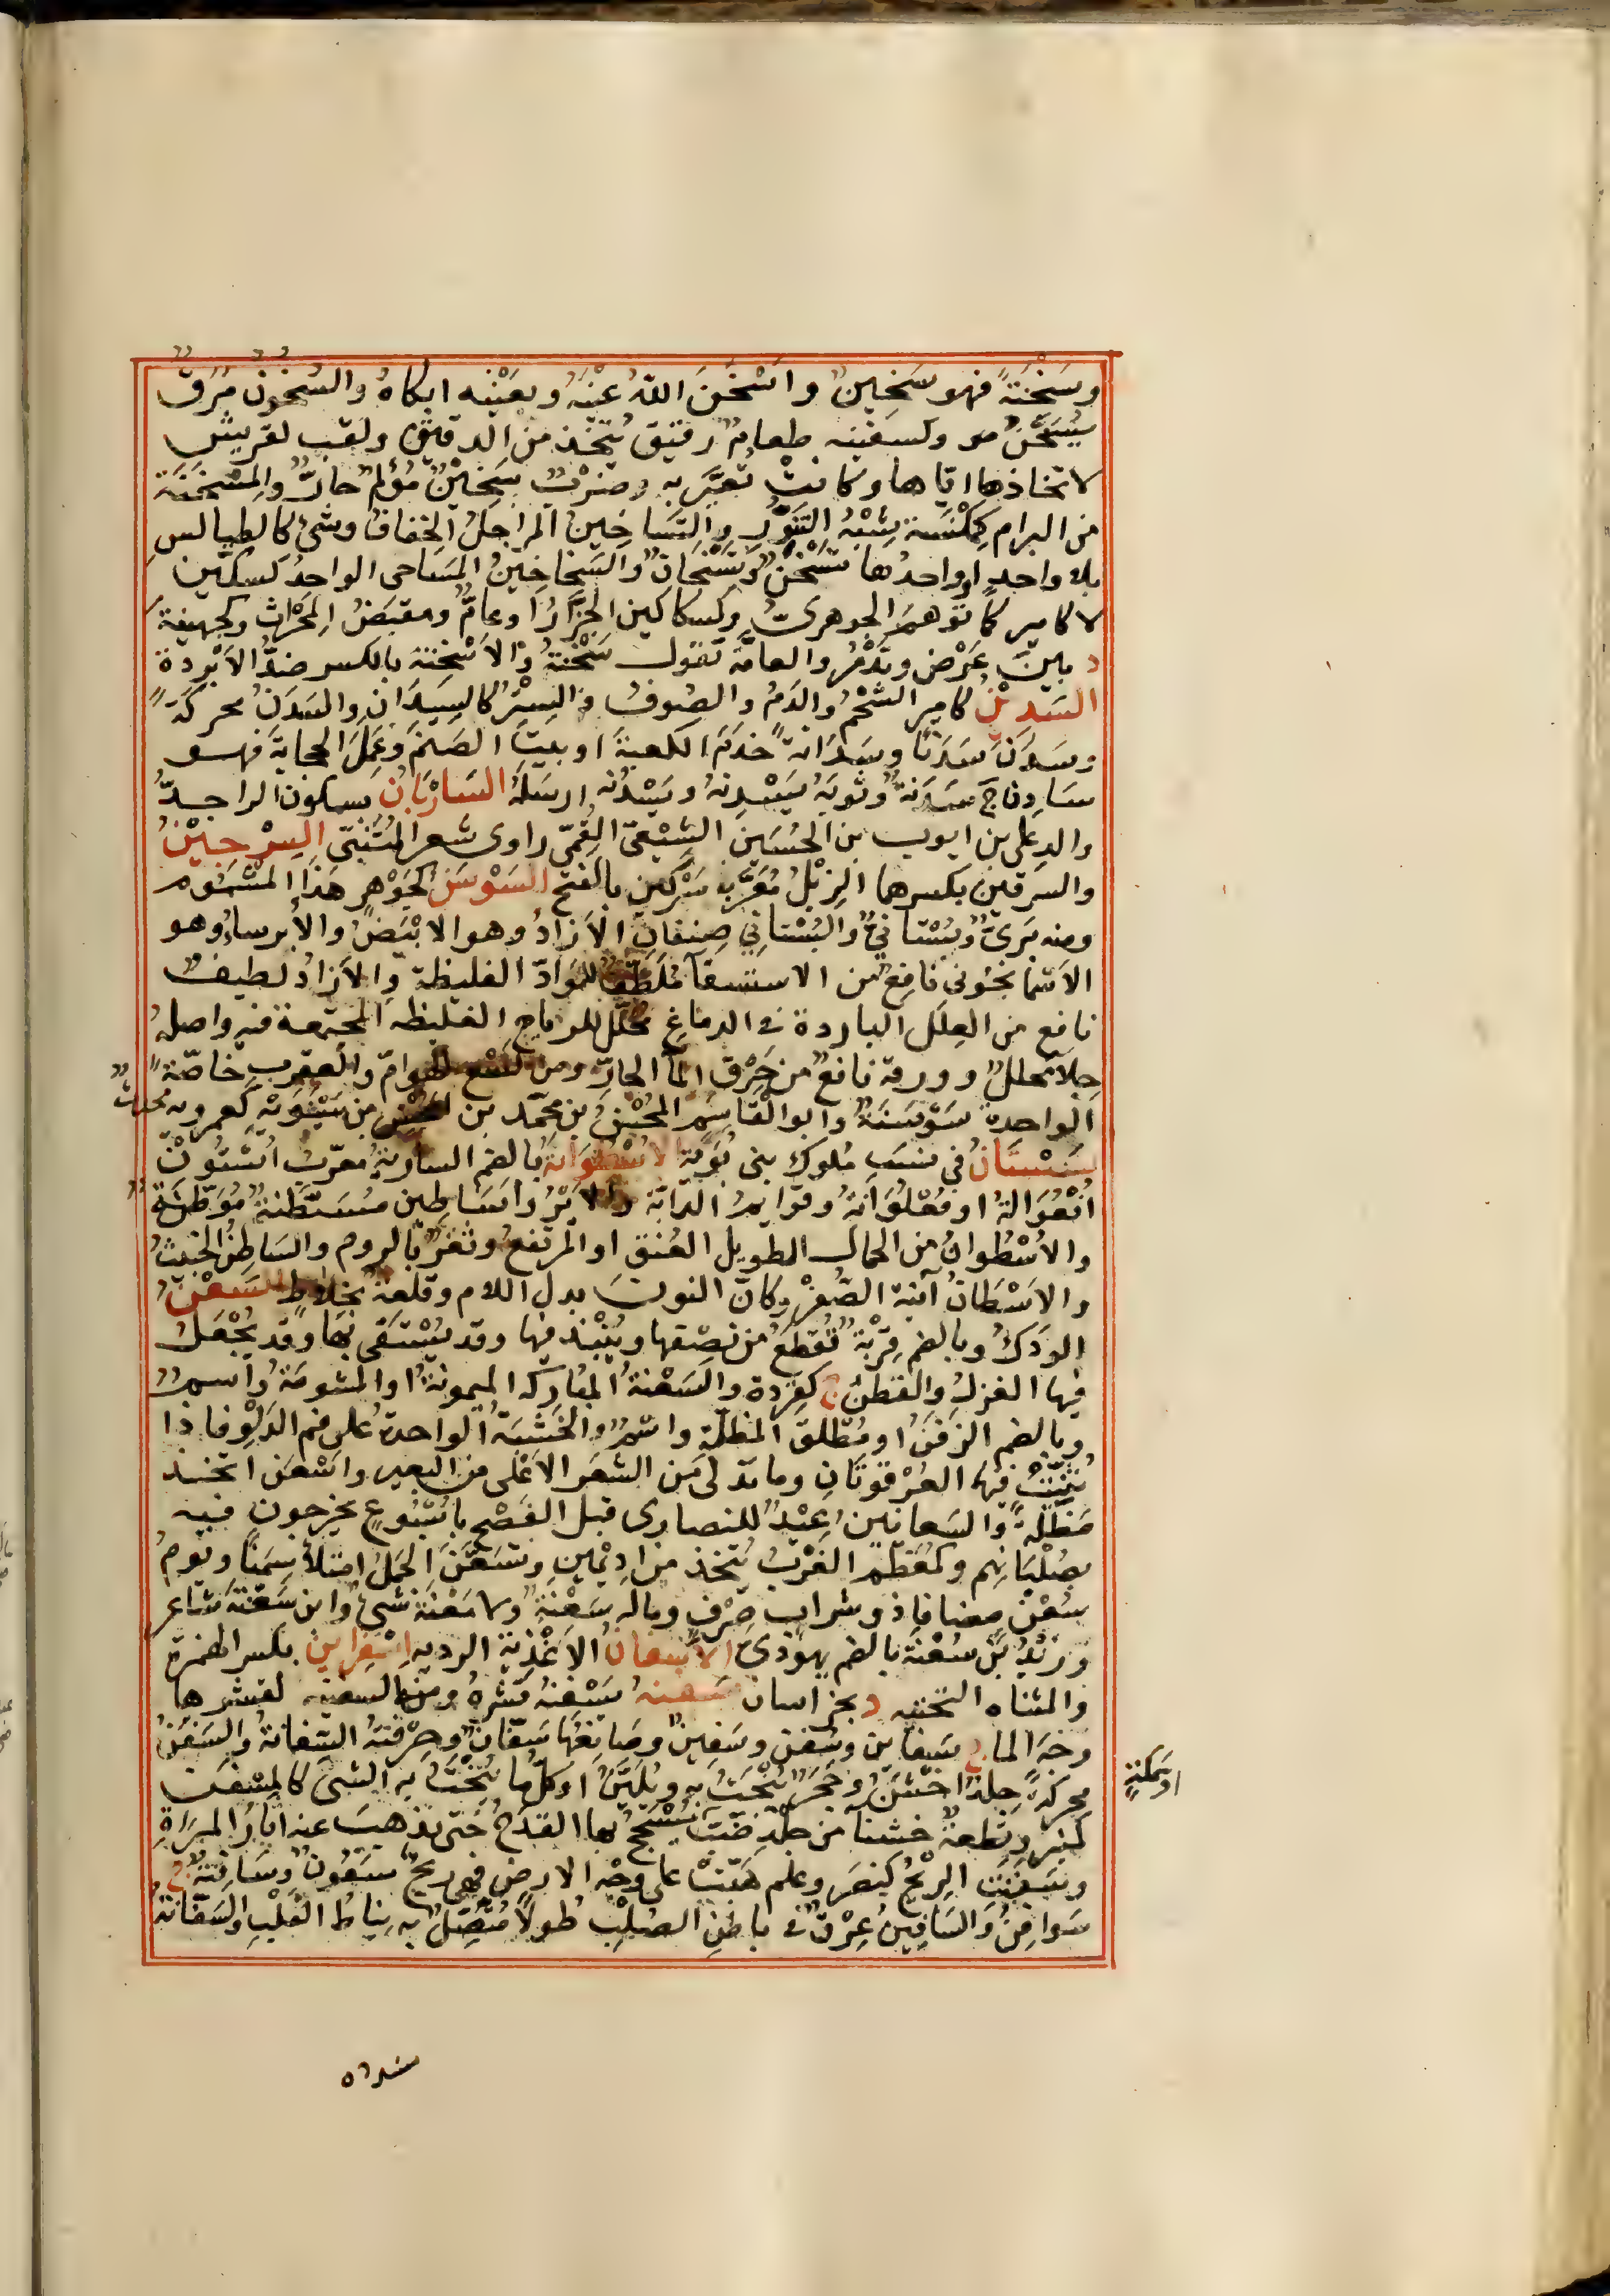 وسَخْنَةً فهو سَخِينٌ وأَسْخَنَ اللهُ عَيْنَهُ وبعَيْنِه ابكاهُ والسَّخُونُ مَرَقٌ
يُسَخَّنُ وكسفينه طعامٌ رقيق يُتَّخذ من الدقيق ولقب لقريش
لاتخاذها ايّاها وكانت تُعَيَّر به وضَرْبٌ سِخِّينٌ مُؤلِمٌ حارٌّ والمِسْخَنَة
من البرام كمِكْنَسة شِبْهُ التَّوْرِ والتَّسَاخِينُ المراجلُ والخفافُ وشئ كالطيالسِ
بلا واحدٍ او واحدُها تَسْخَنٌ وتَسْخَانٌ والسَّخَاخِينُ المسَاحى الواحدُ كسكّين
لا كامير كما توهم الجوهرىُّ وكسكاكين الجزّارِ او عامٌّ ومقبضُ المِحْرَاثِ وكجهينة
د بينَ عُرْضٍ وتَدْمُرَ والعامّة تقول سُخْنَةُ والأُسْخِنَة بالكسر ضدُّ الأَبْرِدَة
السَّدِينُ كامير الشَّحْمُ والدَمُ والصُّوفُ والسِّتْرُ كالسِّدَانِ والسَّدَنُ محركةً
وسَدَنَ سَدَنًا وسَدَانةً خدَمَ الكعبةَ او بيتَ الصَنَم وعَمِلَ الحجابةَ فهو
سَادِنٌ ج سَدَنَةٌ وثوبَهُ يَسْدِنُهُ ويَسْدُنُه ارسَلَهُ السَّارْبَانُ بسكون الرا جَدُّ
والدِ على بن ايوب بن الحُسَين الشِّيعىّ القُمّى راوى شعر المُتَنبّى السِّرْجِينُ
والسِّرْقينُ بكسرهما الزِّبْلُ مُعَرَّبا سَرْكين بالفتح السَّوْسَنُ كجَوْهر هَذَا المَشْمُوم
ومنه بَرّىٌّ وبُسْتانىٌّ والبُسْتانى صِنفان الآزَاذُ وهو الابْيَضُ والايرساءُ وهو
الاسمانجُونى نافِعٌ من الاستسقآ مُلَطِّفٌ للمَوَادّ الغليظة والآزاذُ لطيف
نافع من العِلَل الباردة فى الدماغ محلّل للرياح الغليظه المجتمعة فيه واصلهُ
جِلَآ محلّلٌ وورقه نافعٌ من حَرْق المآ الحارّ ومن لَسْع الهوامّ والعقرب خاصّةً
الواحدة سَوْسَنَةٌ وابو القاسم المُحْسِنُ بن محمّد بن المُحْسِن بن سَوِيَّه كعمرويه محدث
سِسْتَانُ فى نسَب ملوك بنى بُوَيْه الأُسْطُوَانَةُ بالضم السارية مُعرّب أُسْتُون
أُفْعُوالةٌ او فُعْلُوَانةٌ وقوايمُ الدّابّة والأَيْرُ واسَاطِين مُسَطَّنَةٌ مُوَطَّدَة
والأُسْطُوانُ من الجمال الطويل العُنق او المرتفعُ وثغرٌ بالروم والسَاطِنُ الخبيثُ
والاَسْطَانُ آنيَة الصُّفْر وكان النون بدل اللام وقلعة بخلاط السَّعْنُ
الوَدَكُ وبالضم قِرْبةٌ تُقطَعُ من نصفها ويُنْبَذ فيها وقد يُسْتَقى بها وقد يُجْعَلُ
فيها الغزلُ والقطنُ ج كقِرَدة والسَّعْنةُ المباركه الميمونةُ او المشومَةُ واسم
وبالضم الزفنُ او مُطْلَق المِظلّة واسْمٌ والخَشَبَةُ الواحدةُ على فم الدَلْوِ فاذا
ثُنِيَتْ فهما العَرْقُوَتَانِ وما تدلى مِن الشفَر الاعْلى من البعير واسْعَن اتّخذ
مِظَلّةً والسَعانينُ عِيْدٌ للنصارى قبل الفِصْح باُسْبُوعٍ يخرجون فيه
بصُلْبَانِهم وكمُعَظَّم الغَرْبُ يُتَّخذ من اديمَينِ وتسَعَّنَ الجَمَلُ امتلأ سِمَنًا ويوم
سُعْنٍ مضافا ذو شراب صِرْفٍ وماله سَعْنَةٌ ولا مَعْنَةٌ شىٌ وابن سَعْنَةَ شاعر
وزَيْدُ بنُ سُعْنَة بالضم يهودىّ الأَسْفَانُ الأغْذِيَة الرديه إِسْفَرَايِينُ بكسر الهمزة
والمثناه التحتيه د بخراسان سَفَنَهُ يَسْفِنُهُ قَشَرَهُ ومنه السفينه لقشرها
وَجْهَ الماء ج سَفَاين وسُفُن وسَفِينٌ وصَانِعُها سَفّانٌ وحِرْفَتُه السِّفَانةُ والسَّفَنُ
محركةً جِلدٌ اخْشَنُ وحَجَرٌ يُنْحَتُ به ويُلَيَّنُ او كلُّ ما يُنْحَتُ به الشىُ كالمِسْفَن
او سَمكةٍ
كمنبر وقطعةٌ خشنآ من جلْدِ ضَبٍّ يُسْحَجُ بها القِدْحُ حَتى تذهبَ عنه آثارُ المِبْرَاةِ
وسَفَنَتِ الرِّيحُ كنَصَرَ وعلم هَبَّتْ على وجه الارض فهى ريحٌ سَفُونٌ وسَافِنَةٌ ج
سَوافِنُ والسَافِينُ عِرْقٌ فى باطِن الصُلْبِ طُولًا مُتّصِلٌ به نِياطُ القَلْبِ والسَّفّانةُ